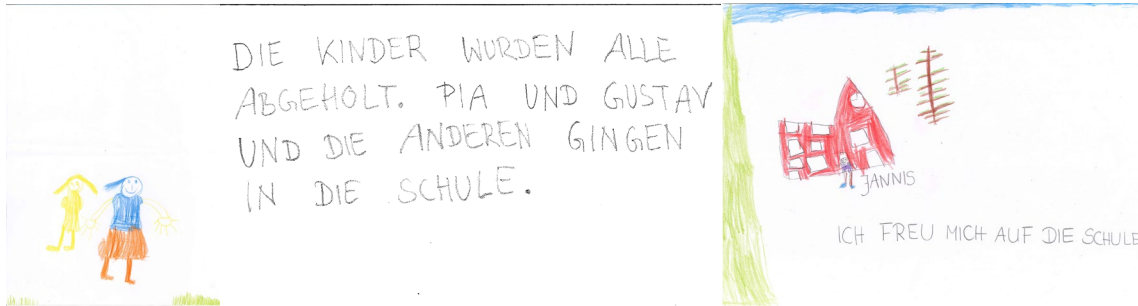 DIE KINDER WURDEN ALLE
ABGEHOLT. PIA UND GUSTAV
UND DIE ANDEREN GINGEN
IN DIE SCHULE.
JANNIS
ICH FREU MICH AUF DIE SCHULE